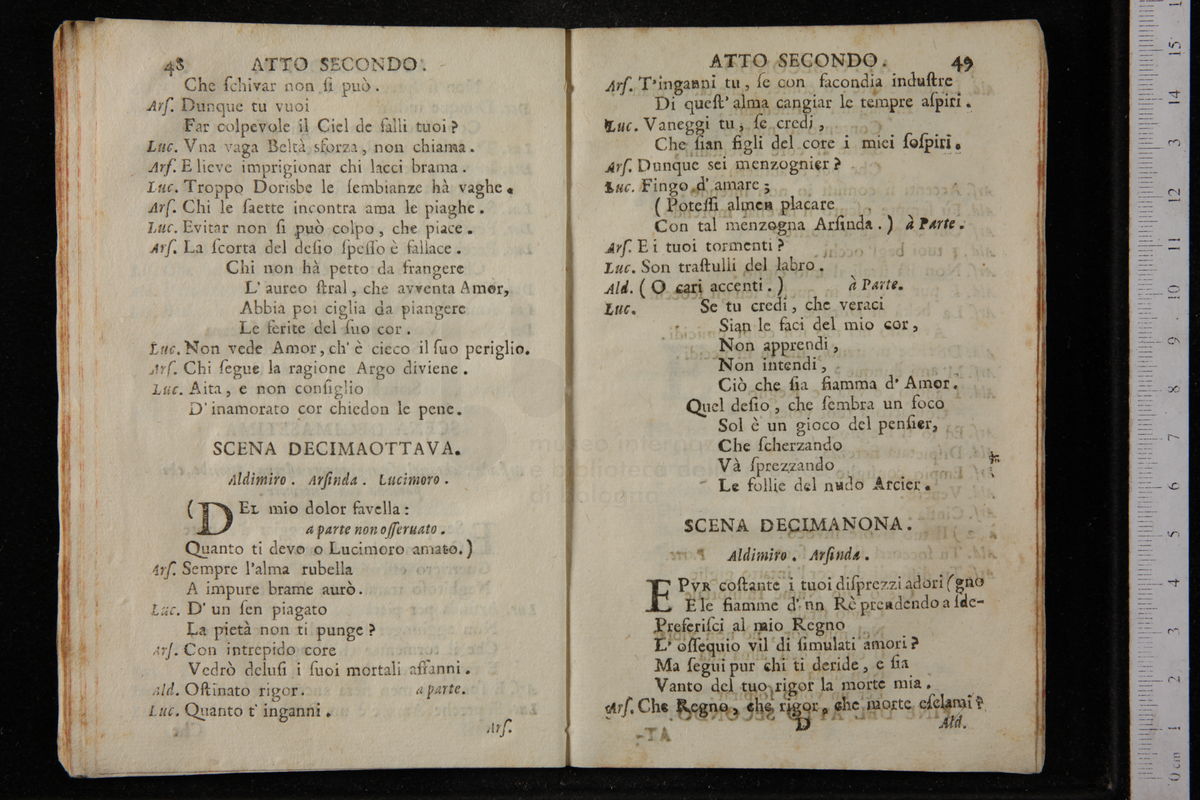 48 ATTO SECONDO.
Che ſchivar non ſi può.
Arſ. Dunque tu vuoi
Far colpevole il Ciel de falli tuoi?
Luc. Vna vaga Beltà sforza, non chiama.
Arſ. E lieve imprigionar chi lacci brama.
Luc. Troppo Dorisbe le ſembianze hà vaghe.
Arſ. Chi le ſaette incontra ama le piaghe.
Luc. Evitar non ſi può colpo, che piace.
Arſ. La ſcorta del deſio ſpeſſo è fallace.
Chi non hà petto da frangere
L' aureo ſtral, che avventa Amor,
Abbia poi ciglia da piangere
Le ferite del ſuo cor.
Luc. Non vede Amor, ch' è cieco il ſuo periglio.
Arſ. Chi ſegue la ragione Argo diviene.
Luc. Aita, e non conſiglio
D' inamorato cor chiedon le pene.
SCENA DECIMAOTTAVA.
Aldimiro. Arſinda. Lucimoro.
(DEL mio dolor favella:
a parte non oſſeruato.
Quanto ti devo o Lucimoro amato.)
Arſ. Sempre l'alma rubella
A impure brame aurò.
Luc. D' un ſen piagato
La pietà non ti punge?
Arſ. Con intrepido core
Vedrò deluſi i ſuoi mortali affanni.
Ald. Oſtinato rigor. a parte.
Luc. Quanto t' inganni.
Arſ.
ATTO SECONDO. 49
Arſ. T'inganni tu, ſe con facondia induſtre
Di queſt' alma cangiar le tempre aſpiri.
Luc. Vaneggi tu, ſe credi,
Che ſian figli del core i miei ſoſpiri.
Arſ. Dunque sei menzognier?
Luc. Fingo d' amare;
(Poteſſi almen placare
Con tal menzogna Arſinda.) à Parte.
Arſ. E i tuoi tormenti?
Luc. Son traſtulli del labro.
Ald. (O cari accenti.) à Parte.
Luc. Se tu credi, che veraci
Sian le faci del mio cor,
Non apprendi,
Non intendi,
Ciò che ſia fiamma d' Amor.
Quel deſio, che ſembra un foco
Sol è un gioco del penſier,
Che ſcherzando
Và ſprezzando
Le follie del nudo Arcier.
SCENA DECIMANONA.
Aldimiro. Arſinda.
E PVR coſtante i tuoi diſprezzi adori (gno
E le fiamme d' un Rè prendendo a ſde-
Preferiſci al mio Regno
L' oſſequio vil di ſimulati amori?
Ma ſegui pur chi ti deride, e ſia
Vanto del tuo rigor la morte mia.
Arſ. Che Regno, che rigor, che morte eſclami?
D Ald.